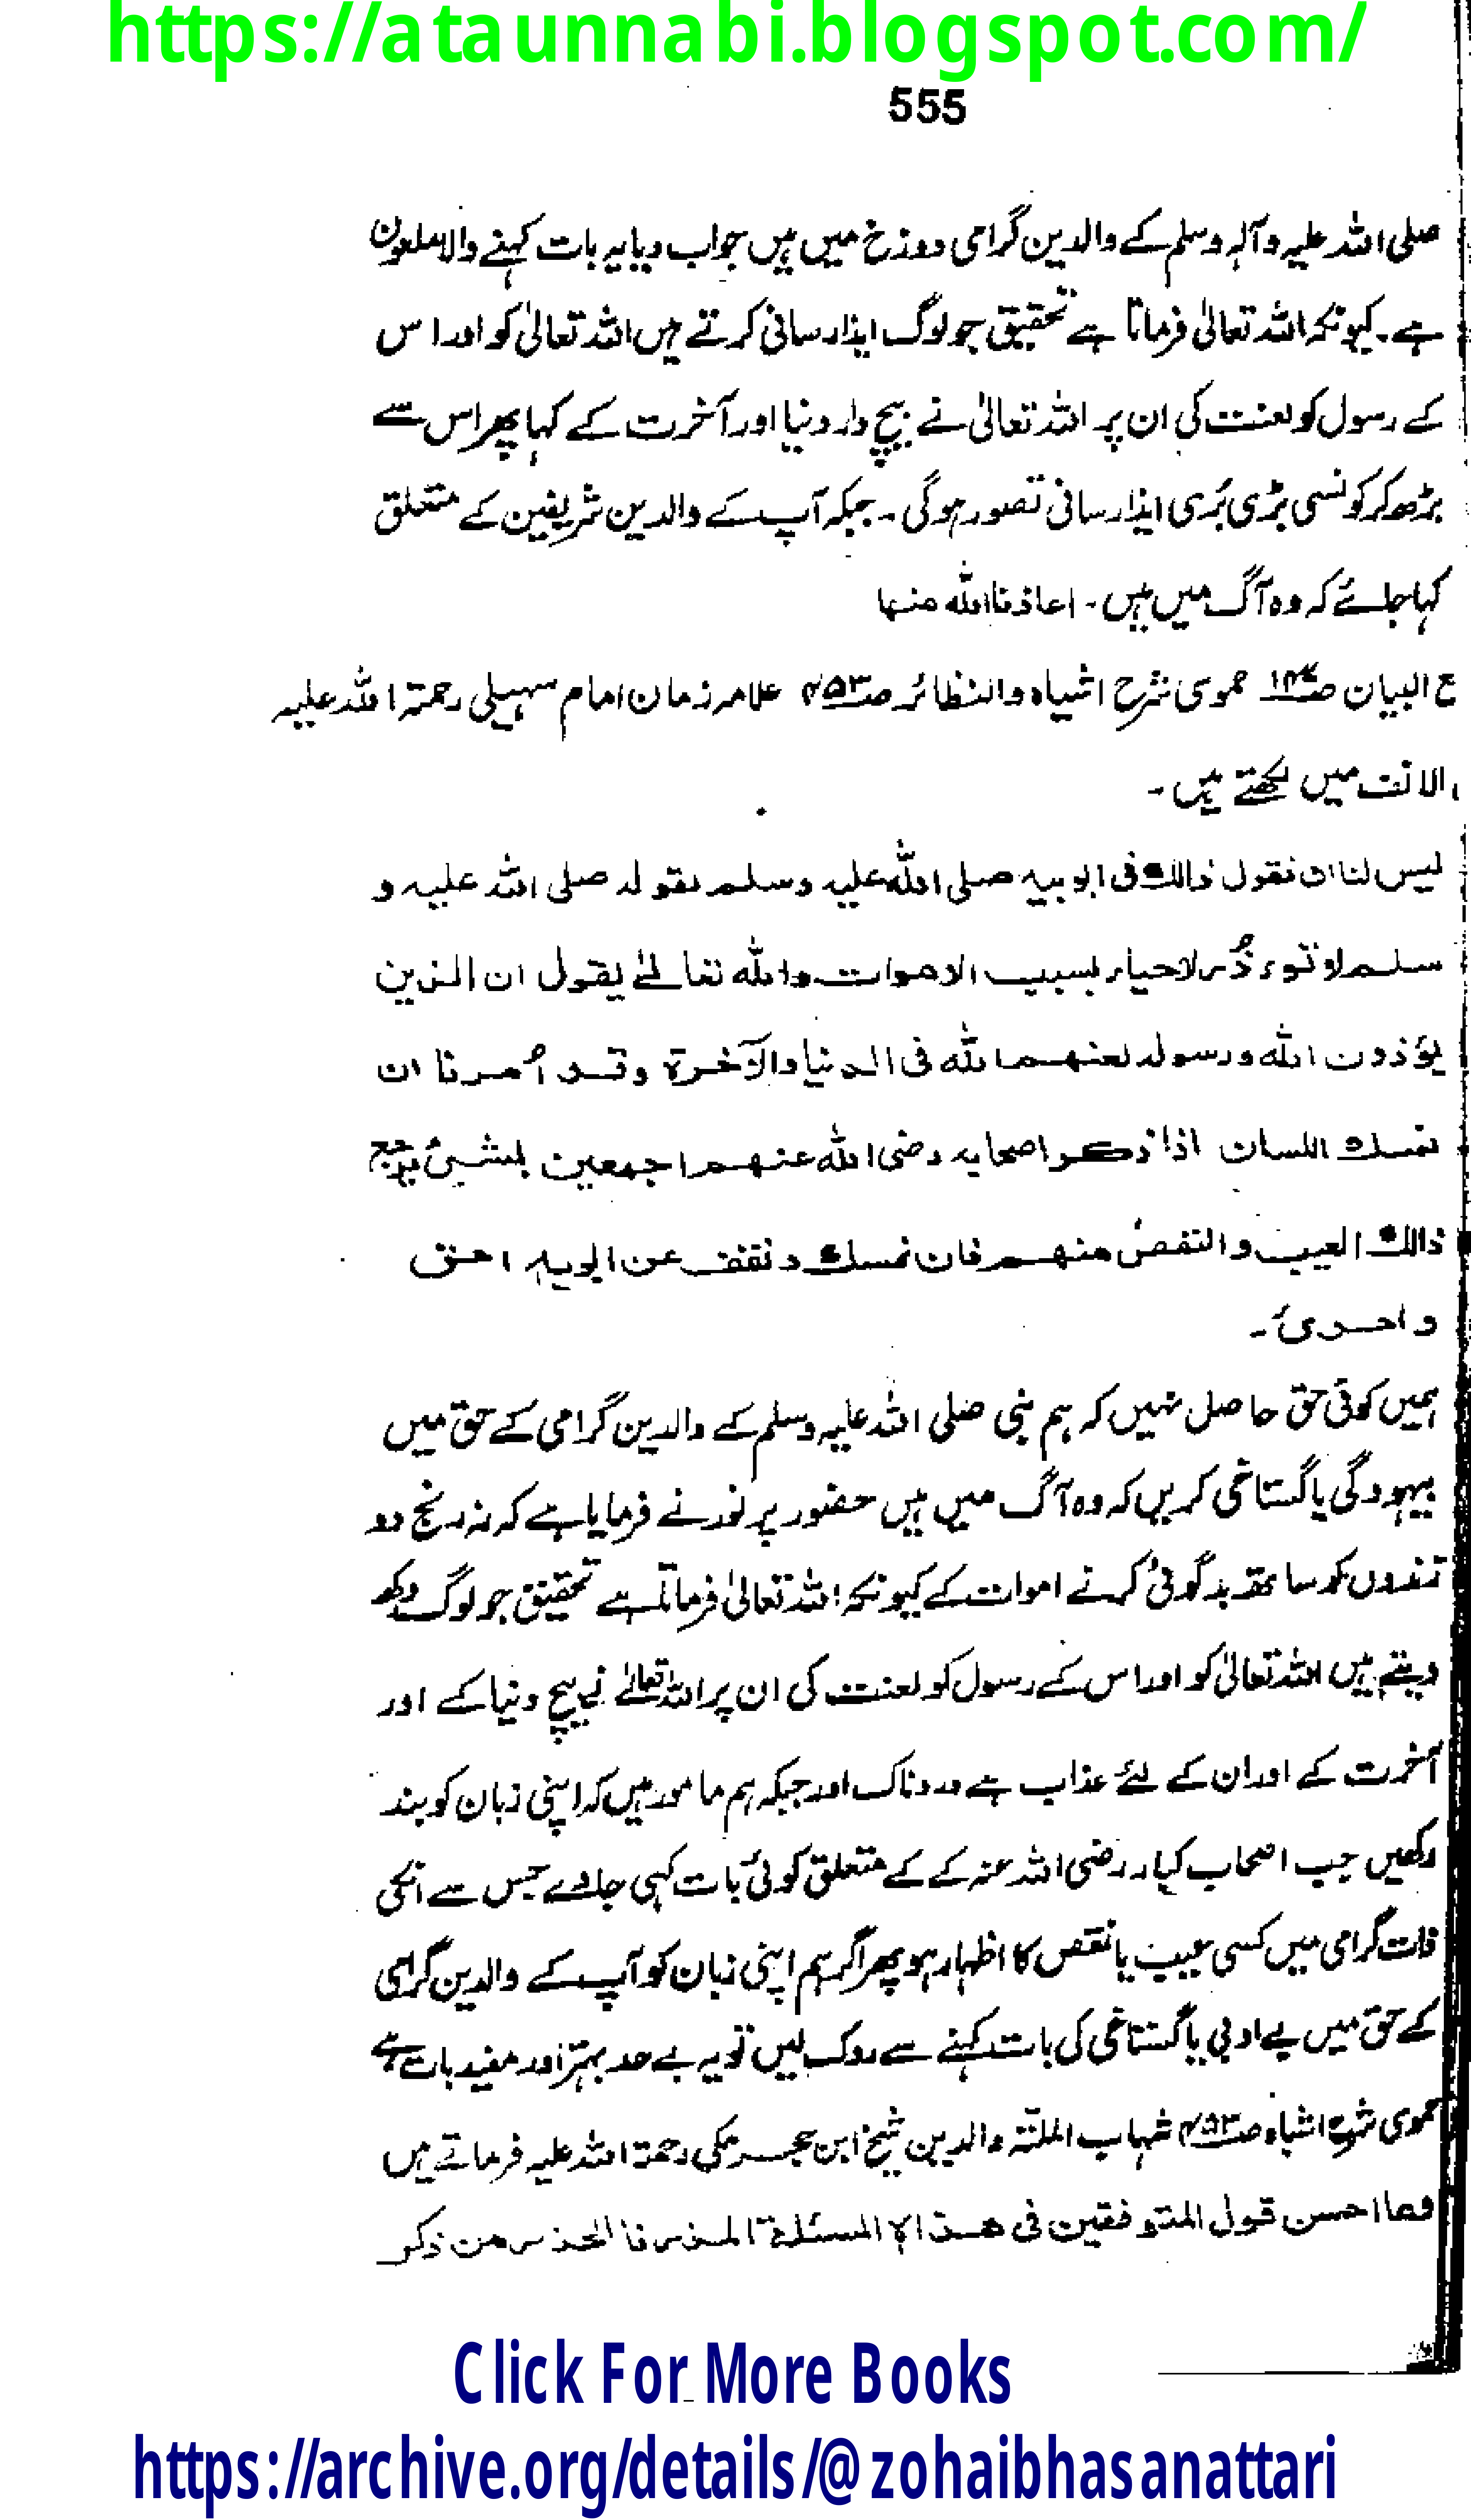 https://ataunnabi.blogspot.com/
555
صلی اللہ علیہ وآلہ وسلم کے والدین گرامی دوزخ میں ہیں جواب دیا یہ بات کہنے والا ملعون
ہے۔ کیونکہ اللہ تعالیٰ فرماتا ہے تحقیق جو لوگ ایذا رسانی کرتے ہیں اللہ تعالیٰ کو اور اس
کے رسول کو لعنت کی ان پر اللہ تعالیٰ نے بیچ دار دنیا اور آخرت کے کہا پھر اس سے
بڑھ کر کونسی بڑی بُری ایذا رسانی تصور ہوگی۔ جبکہ آپ کے والدین شریفین کے متعلق
کہا جائے کہ وہ آگ میں ہیں۔ اعاذنا اللہ منہا
ع البیان صـ حموی شرح اشباہ والنظائر صـ۴۵۳ علامہ زمان امام سہیلی رحمۃ اللہ علیہ
الانف میں لکھتے ہیں۔
لیس لنا ان نقول ذالک فی ابویہ صلی اللہ علیہ وسلم بقولہ صلی اللہ علیہ و
سلم لا توءذُ لاحیاء بسبب الاموات واللہ تعالےٰ یقول ان الذین
یؤذون اللہ ورسولہ لعنہم اللہ فی الدنیا والآخرۃ وقد اُمرنا ان
نمسک اللسان اذا ذکر اصحابہ رضی اللہ عنہم اجمعین بشیئ یرجع
ذالک العیب والنقص منہم فان نمسک و نقف عن ابویہ احق
و احریٰ۔
ہمیں کوئی حق حاصل نہیں کہ ہم نبی صلی اللہ علیہ وسلم کے والدین گرامی کے حق میں
بیہودگی یا گستاخی کریں کہ وہ آگ میں ہیں حضور پر نور نے فرمایا ہے کہ نہ رنج دو
زندوں کو ساتھ بدگوئی کرنے اموات کے کیونکہ اللہ تعالیٰ فرماتا ہے تحقیق جو لوگ دکھ
دیتے ہیں اللہ تعالیٰ کو اور اس کے رسول کو لعنت کی ان پر اللہ تعالےٰ نے بیچ دنیا کے اور
آخرت کے اور ان کے لئے عذاب ہے دردناک اور جبکہ ہم مامور ہیں کہ اپنی زبان کو بند
رکھیں جب اصحاب کبار رضی اللہ عنہ کے کے متعلق کوئی بات کہی جاوے جس سے انکی
ذات گرامی میں کسی عیب یا نقص کا اظہار ہو پھر اگر ہم اپنی زبان کو آپ کے والدین گرامی
کے حق میں بے ادبی یا گستاخی کی بات کہنے سے روک لیں تو یہ بے حد بہتر اور مفید بات ہے
حموی شرح اشباہ صـ۴۵۳ شہاب الملتہ والدین شیخ ابن حجر مکی رحمۃ اللہ علیہ فرماتے ہیں
فما احسن قول المتوقفین فی ھذہ المسئلۃ الحذر فالحذر من ذکر
Click For More Books
https://archive.org/details/@zohaibhasanattari